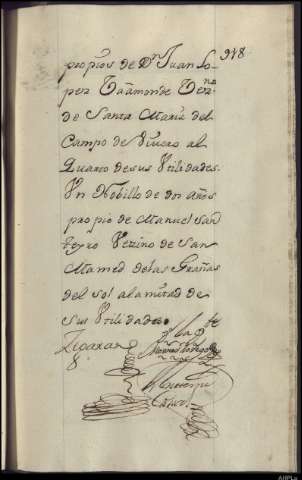 948.
propios de Dn Juan Lo-
pez Taamonde Vezno
de Santa Maria del
Campo de Vivero al
Quarto de sus Utilidades.
Un Nobillo de dos años
propio de Manuel San
teyro Vezino de San
Mamed de las Grañas
del sol a la mitad de
sus Utilidades